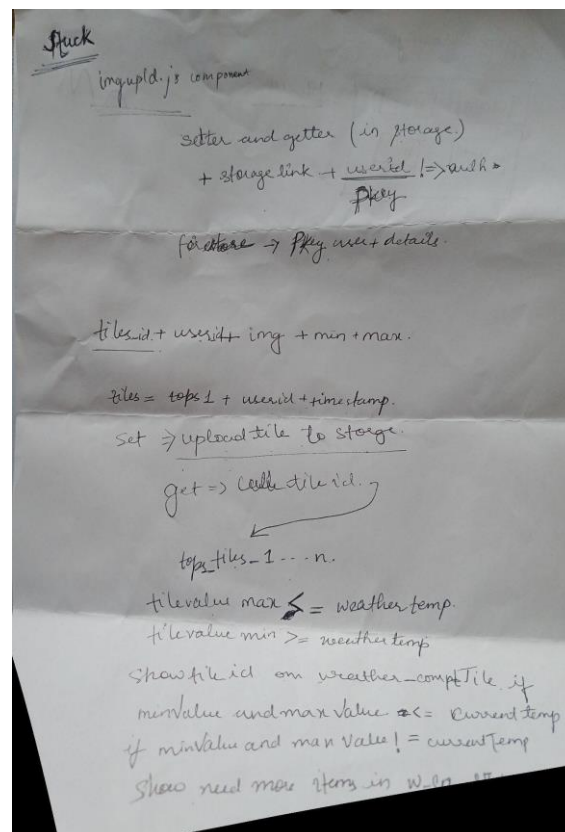 Stuck
imgupld.js component
setter and getter (in storage)
+ storage link + userid != auth
pkey
→ Pkey user + details.
tiles_id + userid + img + min + max.
tiles = tops 1 + userid + timestamp.
set ⇒ upload tile to storge.
get => tile id.
tops_tiles_1 --- n.
tilevalue max <= weather temp.
tilevalue min >= weather temp
show tile id on weather_comptTile if
minValue and max value <= current temp
if minValue and max value != current Temp
show need more items in